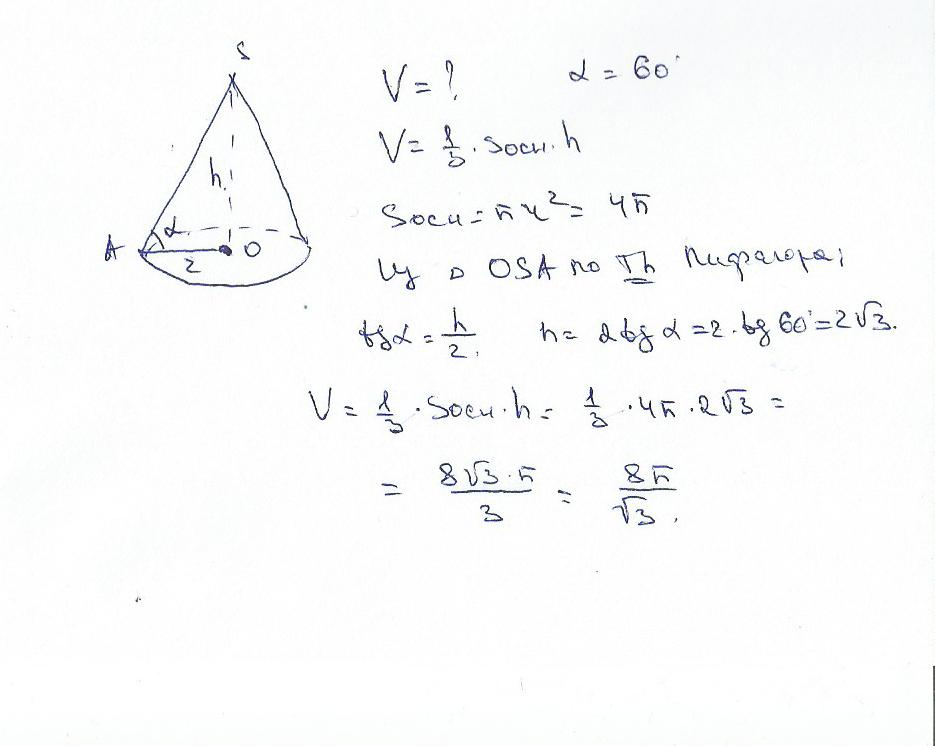 S
h
α
A
2
O
V = ? α = 60°
V = 1/3 · Sосн · h
Sосн = πr² = 4π
Из △ OSA по Th Пифагора;
tgα = h/2, h = 2tgα = 2·tg60° = 2√3.
V = 1/3 · Sосн · h = 1/3 · 4π · 2√3 =
= 8√3·π/3 = 8π/√3.